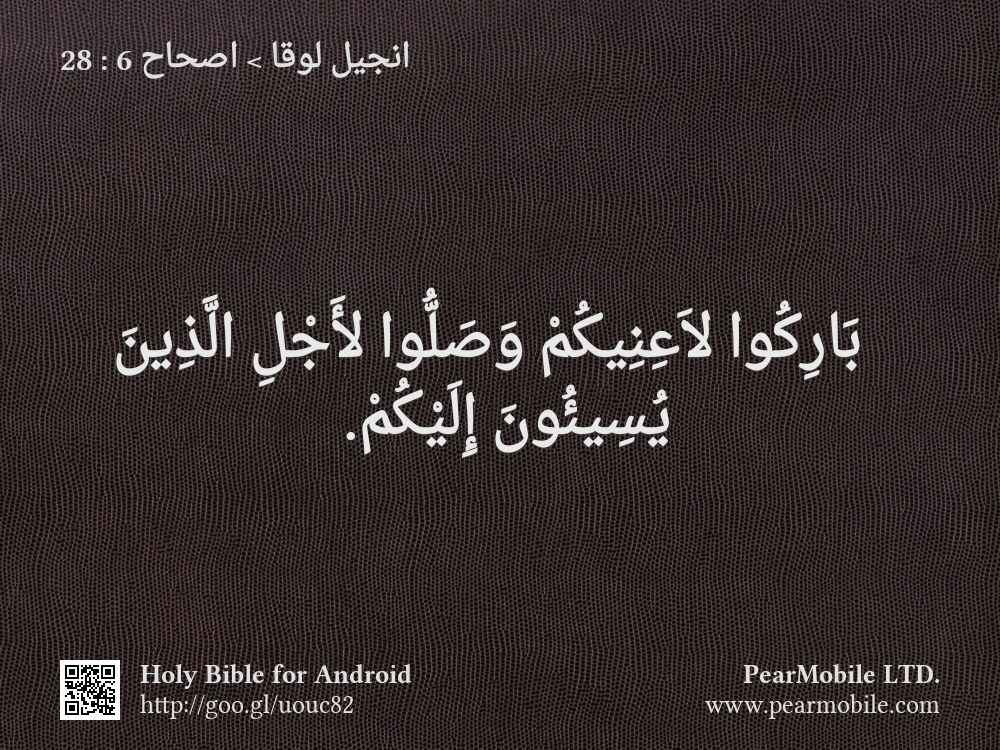 انجيل لوقا > اصحاح 6 : 28
بَارِكُوا لاَعِنِيكُمْ وَصَلُّوا لأَجْلِ الَّذِينَ
يُسِيئُونَ إِلَيْكُمْ.
Holy Bible for Android
http://goo.gl/uouc82
PearMobile LTD.
www.pearmobile.com